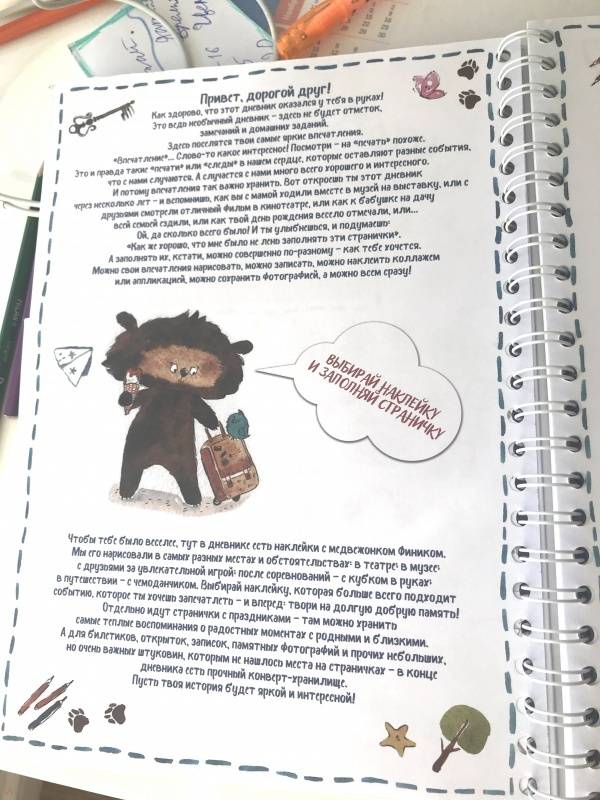 16
Привет, дорогой друг!
Как здорово, что этот дневник оказался у тебя в руках!
Это ведь необычный дневник – здесь не будет отметок,
замечаний и домашних заданий.
Здесь поселятся твои самые яркие впечатления.
«Впечатление»... Слово-то какое интересное! Посмотри – на «печать» похоже.
Это и правда такие «печати» или «следы» в нашем сердце, которые оставляют разные события,
что с нами случаются. А случается с нами много всего хорошего и интересного.
И потому впечатления так важно хранить. Вот откроешь ты этот дневник
через несколько лет – и вспомнишь, как вы с мамой ходили вместе в музей на выставку, или с
друзьями смотрели отличный фильм в кинотеатре, или как к бабушке на дачу
всей семьей ездили, или как твой день рождения весело отмечали, или...
Ой, да сколько всего было! И ты улыбнешься, и подумаешь:
«Как же хорошо, что мне было не лень заполнять эти странички».
А заполнять их, кстати, можно совершенно по-разному – как тебе хочется.
Можно свои впечатления нарисовать, можно записать, можно наклеить коллажем
или аппликацией, можно сохранить фотографией, а можно всем сразу!
ВЫБИРАЙ НАКЛЕЙКУ
И ЗАПОЛНЯЙ СТРАНИЧКУ
Чтобы тебе было веселее, тут в дневнике есть наклейки с медвежонком Фиником.
Мы его нарисовали в самых разных местах и обстоятельствах: в театре; в музее;
с друзьями за увлекательной игрой; после соревнований – с кубком в руках;
в путешествии – с чемоданчиком. Выбирай наклейку, которая больше всего подходит
событию, которое ты хочешь запечатлеть – и вперед: твори на долгую добрую память!
Отдельно идут странички с праздниками – там можно хранить
самые теплые воспоминания о радостных моментах с родными и близкими.
А для билетиков, открыток, записок, памятных фотографий и прочих небольших,
но очень важных штуковин, которым не нашлось места на страничках – в конце
дневника есть прочный конверт-хранилище.
Пусть твоя история будет яркой и интересной!